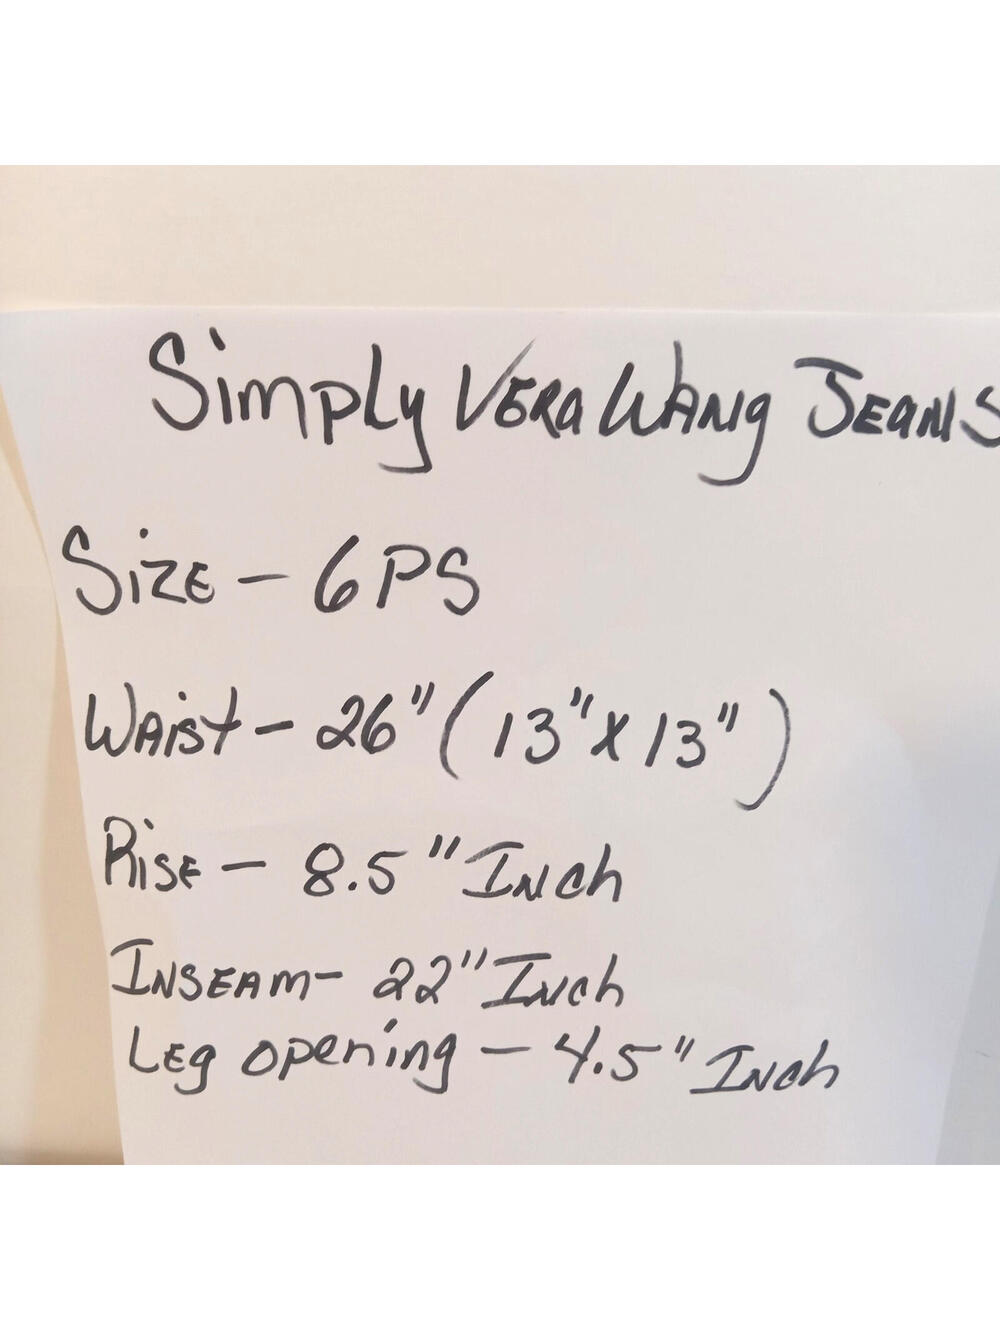 Simply Vera Wang Jeans
Size - 6PS
Waist - 26" (13" x 13")
Rise - 8.5" Inch
Inseam - 22" Inch
Leg opening - 4.5" Inch